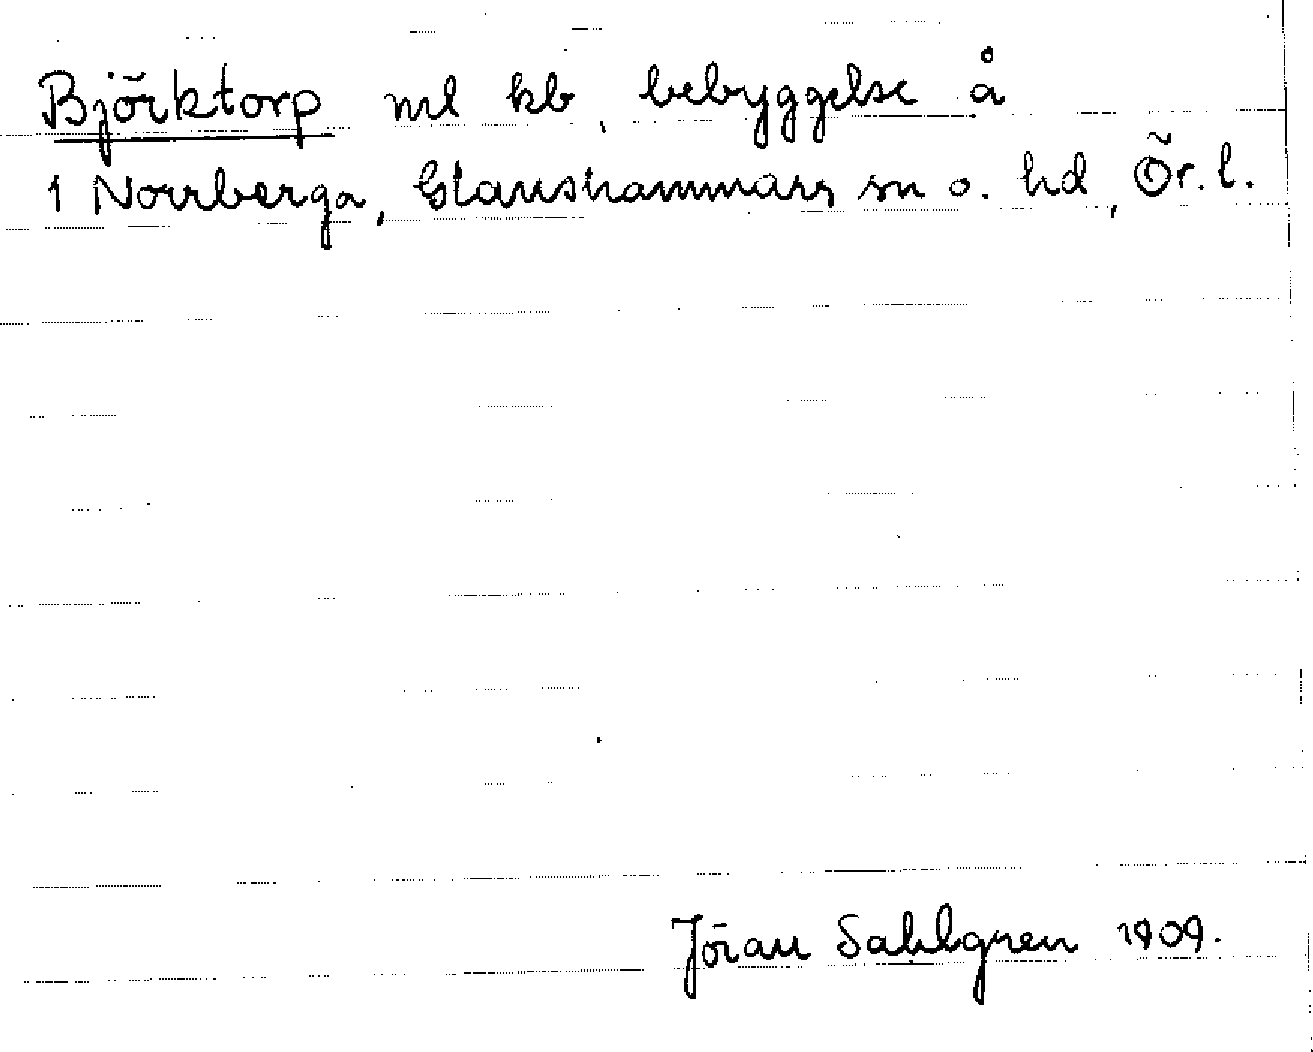 Björktorp ml kb, bebyggelse å
1 Norrberga, Glanshammars sn o. hd, Ör. l.
Jöran Sahlgren 1909.